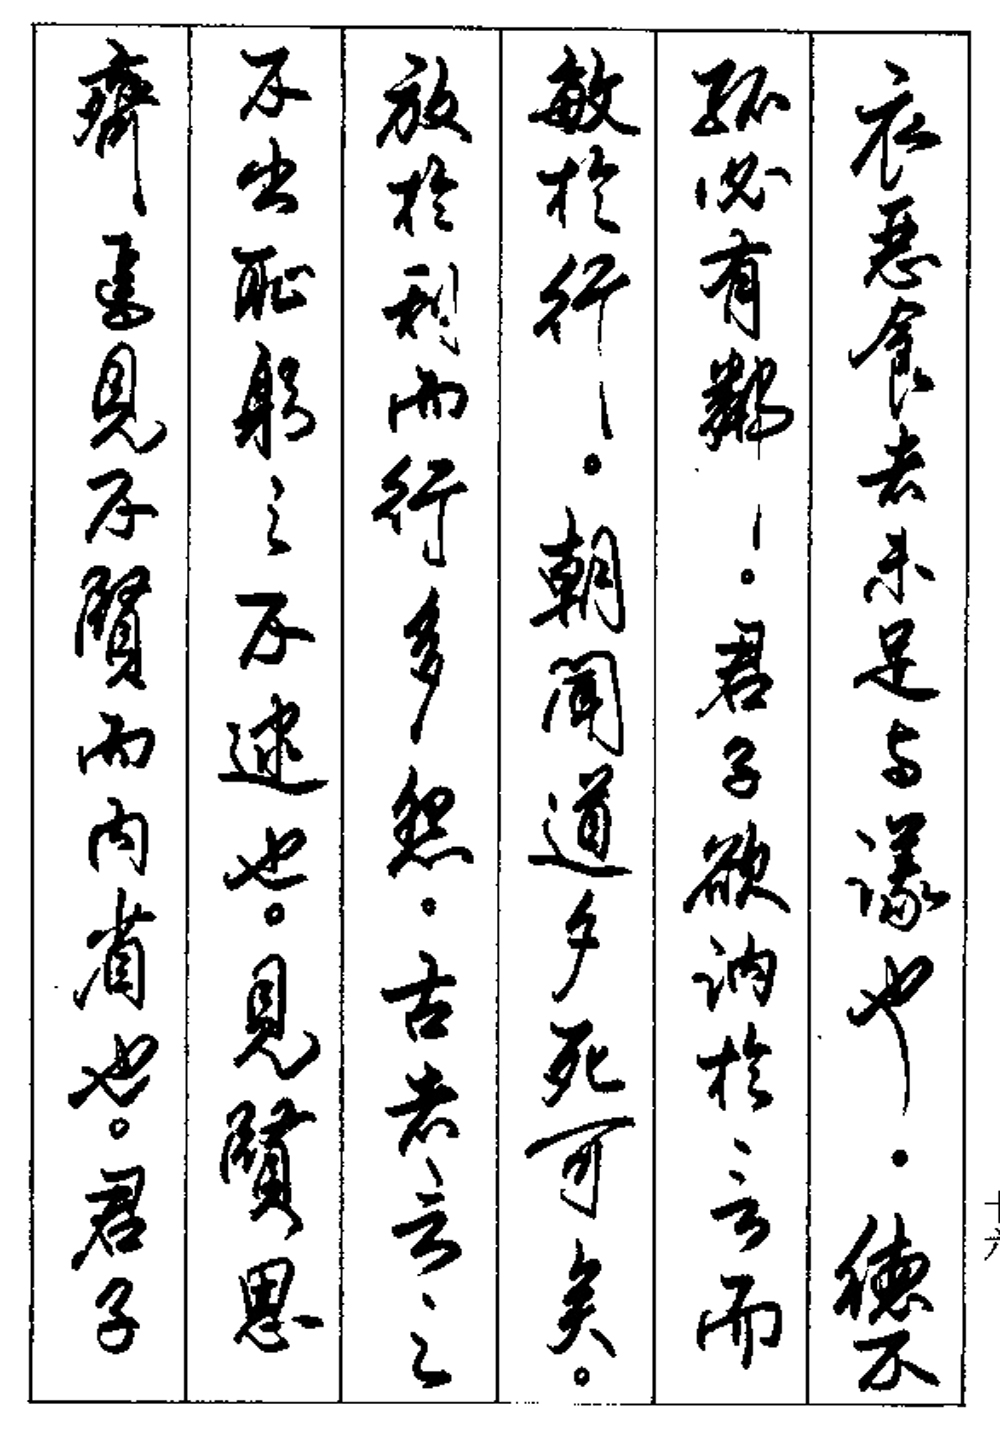 衣惡食者未足与議也。德不
孤必有鄰。君子欲訥於言而
敏於行。朝聞道夕死可矣。
放於利而行多怨。古者言之
不出恥躬之不逮也。見賢思
齊焉見不賢而内省也。君子
十六